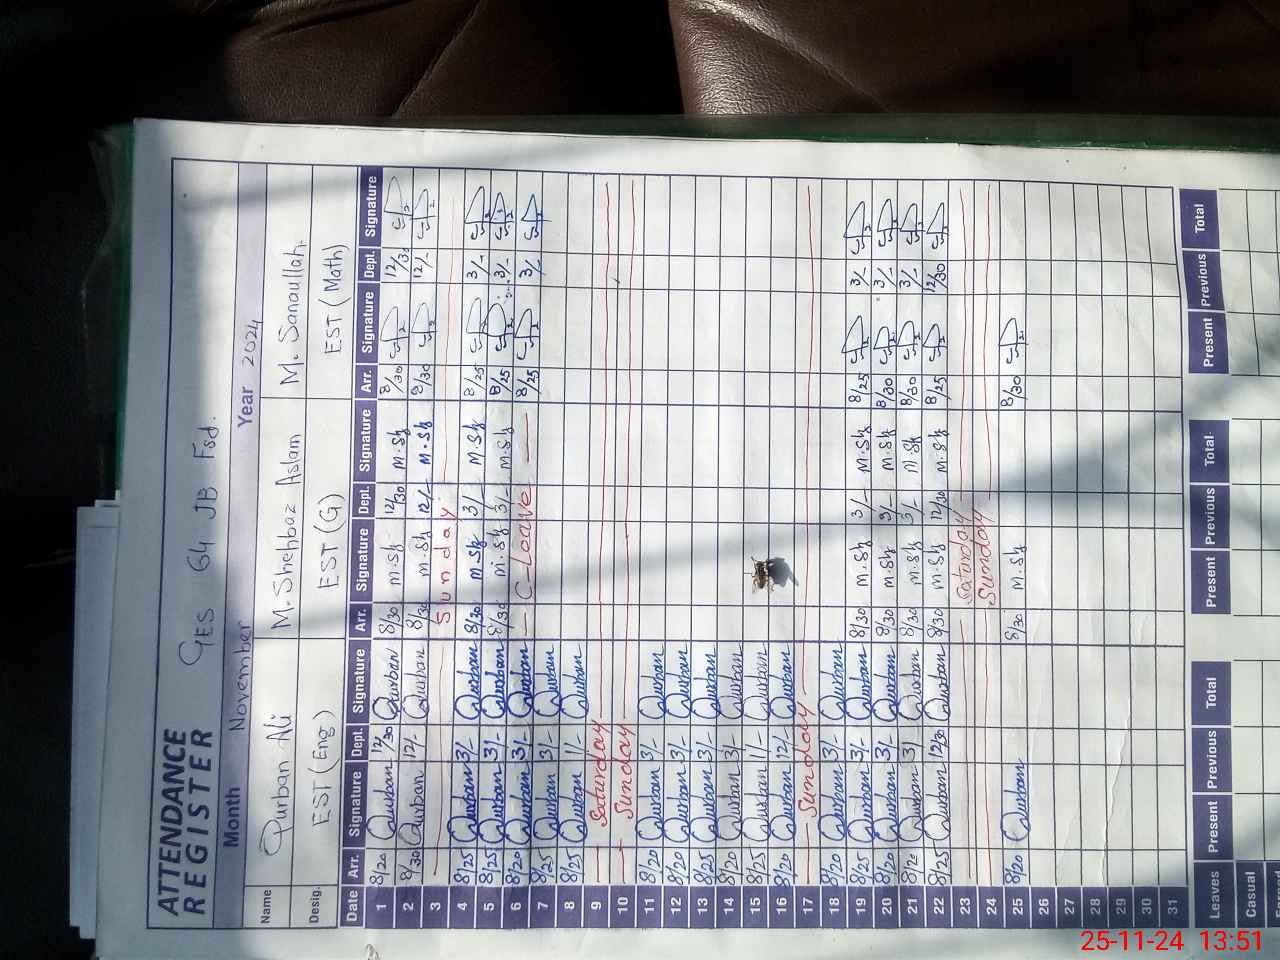 ATTENDANCE
REGISTER
GES 64 JB Fsd.
Month November Year 2024
Name Qurban Ali M. Shehbaz Aslam M. Sanaullah.
Desig. EST (Eng) EST (G) EST (Math)
Date Arr. Signature Dept. Signature Arr. Signature Dept. Signature Arr. Signature Dept. Signature
1 8/20 Qurban 12/30 Qurban 8/30 M.Sh 12/30 M.Sh 8/30 12/30
2 8/30 Qurban 12/- Qurban 8/30 M.Sh 12/- M.Sh 8/30 12/-
3 Sunday
4 8/25 Qurban 3/- Qurban 8/30 M.Sh 3/- M.Sh 8/25 3/-
5 8/25 Qurban 3/- Qurban 8/30 M.Sh 3/- M.Sh 8/25 3/-
6 8/20 Qurban 3/- Qurban C-Leave 8/25 3/-
7 8/25 Qurban 3/- Qurban
8 8/25 Qurban 1/- Qurban
9 Saturday
10 Sunday
11 8/20 Qurban 3/- Qurban
12 8/20 Qurban 3/- Qurban
13 8/25 Qurban 3/- Qurban
14 8/20 Qurban 3/- Qurban
15 8/25 Qurban 1/- Qurban
16 8/20 Qurban 12/- Qurban
17 Sunday
18 8/20 Qurban 3/- Qurban
19 8/25 Qurban 3/- Qurban 8/30 M.Sh 3/- M.Sh 8/25 3/-
20 8/20 Qurban 3/- Qurban 8/30 M.Sh 3/- M.Sh 8/30 3/-
21 8/20 Qurban 3/ Qurban 8/30 M.Sh 3/- M.Sh 8/30 3/-
22 8/25 Qurban 12/30 Qurban 8/30 M.Sh 12/30 M.Sh 8/25 12/30
23 Saturday
24 Sunday
25 8/20 Qurban 8/30 M.Sh 8/30
26
27
28
29
30
31
Leaves Present Previous Total Present Previous Total Present Previous Total
Casual
25-11-24 13:51